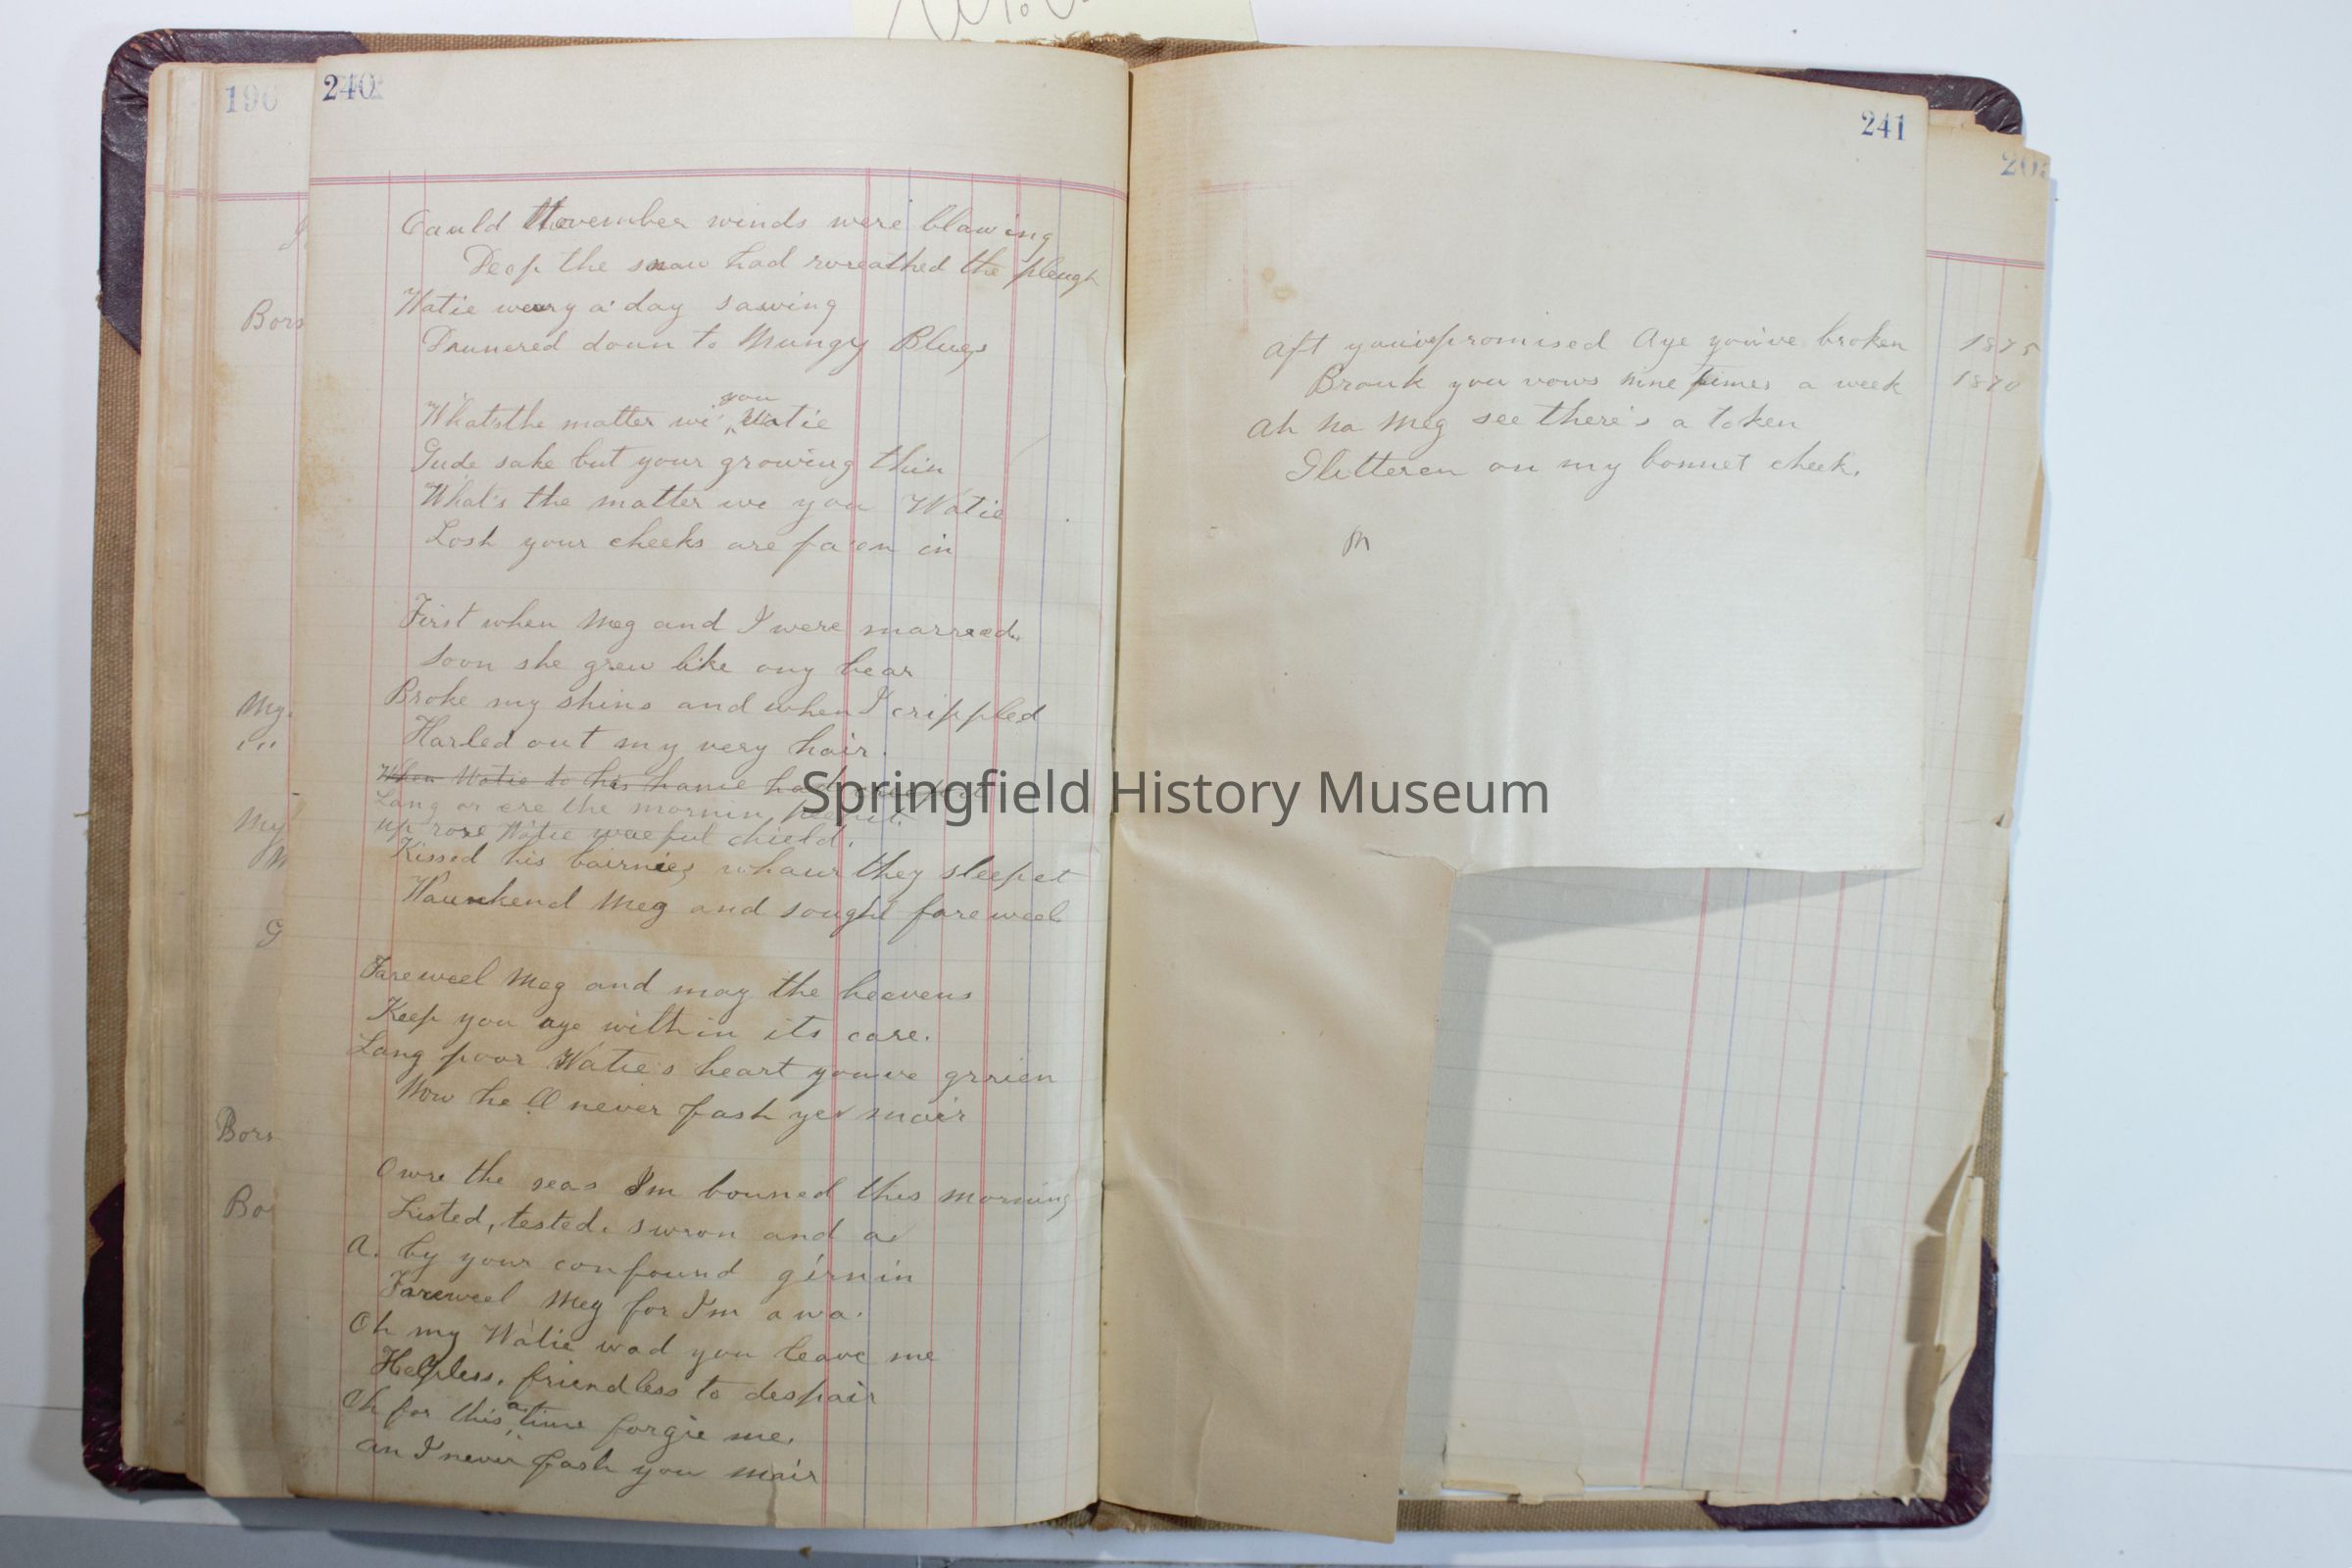 190
240
Cauld November winds were blawing
Deep the snaw had wreathed the pleugh
Watie weary a' day sawing
Daunered down to Mungy Blues
What's the matter wi' you Watie
Gude sake but your growing thin
What's the matter wi you Watie
Losh your cheeks are fa'en in
First when Meg and I were married.
Soon she grew like ony bear
Broke my shins and when I crippled
Harled out my very hair.
When Watie to his hame had
Lang or ere the mornin
up rose Watie waeful chield.
Kissed his bairnies whaur they sleepet
Waukend Meg and sought fareweel
Fareweel Meg and may the heevens
Keep you aye within its care.
Lang poor Watie's heart you've grien
Now he'll never fash ye mair
Owre the seas I'm bouned this morning
Listed, tested. swron and a'
A. by your confound girnin
Fareweel Meg for I'm awa.
Oh my Watie wad you leave me
Helpless, friendless to despair
Oh for this a time forgie me.
an I never fash you mair
Born
My
My
M
G
Born
Bo
241
20
Aft you've promised Aye you've broken
Brouk you vows nine times a week
Ah ha Meg see there's a token
Glitteren on my bonnet cheek.
M
1875
1870
Springfield History Museum